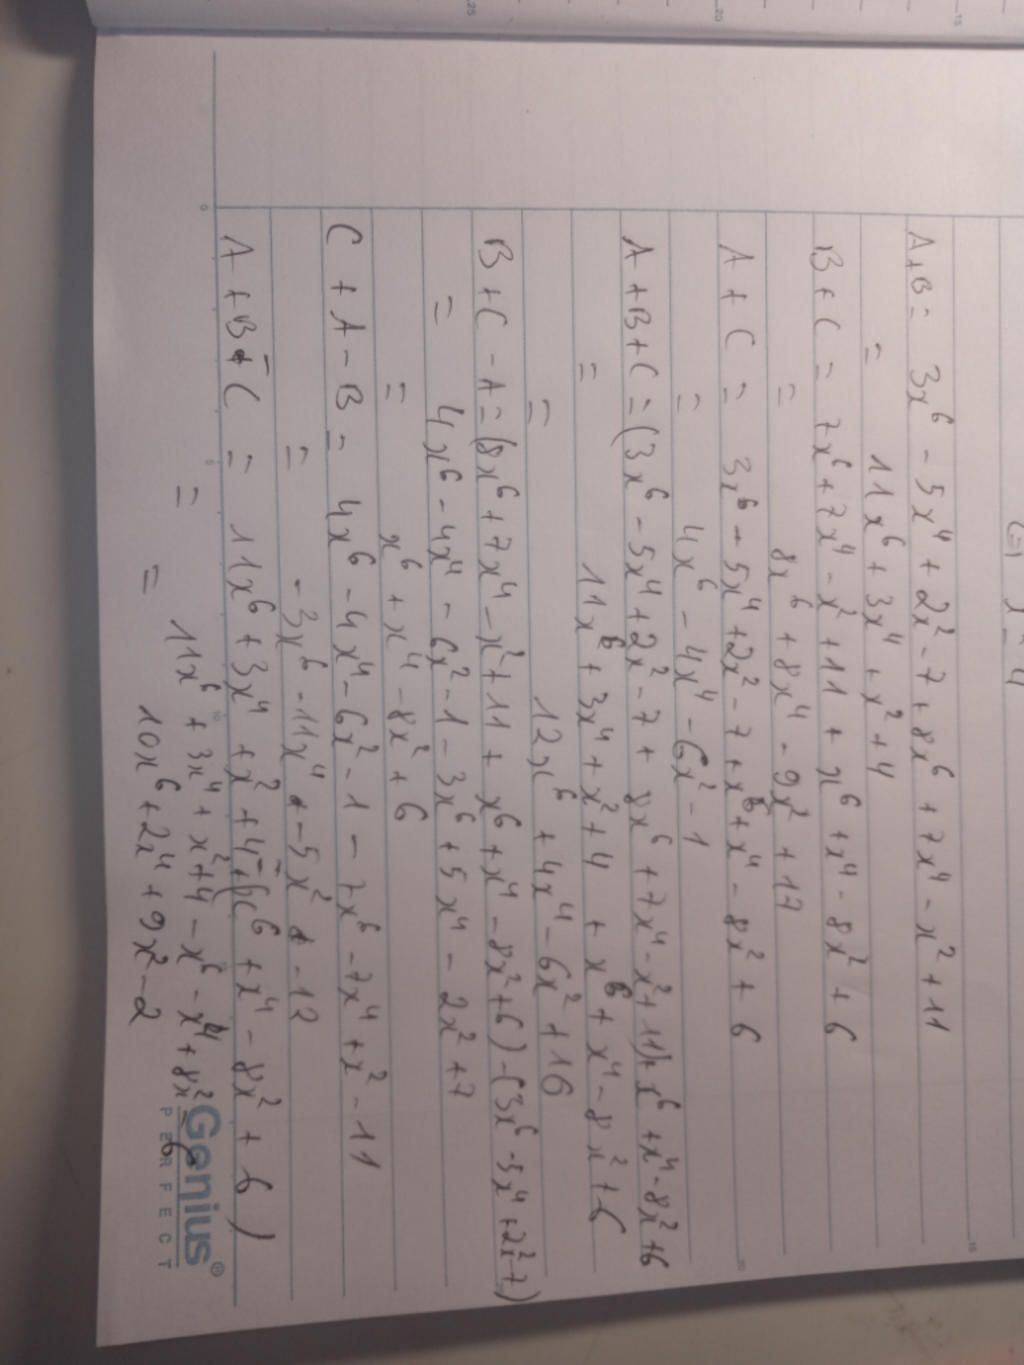 A+B = 3x⁶ - 5x⁴ + 2x² - 7 + 8x⁶ + 7x⁴ - x² + 11
= 11x⁶ + 3x⁴ + x² + 4
B + C = 7x⁶ + 7x⁴ - x² + 11 + x⁶ + x⁴ - 8x² + 6
= 8x⁶ + 8x⁴ - 9x² + 17
A + C = 3x⁶ - 5x⁴ + 2x² - 7 + x⁶ + x⁴ - 8x² + 6
= 4x⁶ - 4x⁴ - 6x² - 1
A + B + C = (3x⁶ - 5x⁴ + 2x² - 7 + 8x⁶ + 7x⁴ - x² + 11) + x⁶ + x⁴ - 8x² + 6
= 11x⁶ + 3x⁴ + x² + 4 + x⁶ + x⁴ - 8x² + 6
= 12x⁶ + 4x⁴ - 6x² + 16
B + C - A = (8x⁶ + 7x⁴ - x² + 11 + x⁶ + x⁴ - 8x² + 6) - (3x⁶ - 5x⁴ + 2x² - 7)
= 4x⁶ - 4x⁴ - 6x² - 1 - 3x⁶ + 5x⁴ - 2x² + 7
= x⁶ + x⁴ - 8x² + 6
C + A - B = 4x⁶ - 4x⁴ - 6x² - 1 - 7x⁶ - 7x⁴ + x² - 11
= - 3x⁶ - 11x⁴ - 5x² - 12
A + B - C = 11x⁶ + 3x⁴ + x² + 4 - (x⁶ + x⁴ - 8x² + 6)
= 11x⁶ + 3x⁴ + x² + 4 - x⁶ - x⁴ + 8x² - 6
= 10x⁶ + 2x⁴ + 9x² - 2
Genius®
PERFECT